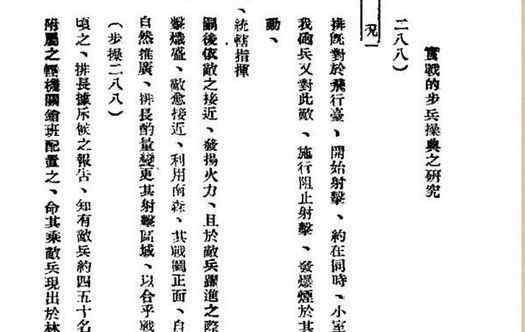 實戰的步兵操典之研究
二八八)
況
排既對於飛行臺、開始射擊、約在同時、小室
我砲兵又對此敵、施行阻止射擊、發爆煙於其
動、
、統轄指揮
爾後依敵之接近、發揚火力、且於敵兵躍進之際
擊熾盛、敵愈接近、利用森、其戰鬭正面、自
自然推廣、排長酌量變更其射擊區域、以合乎戰
(步操二八八)
頃之、排長據斥候之報告、知有敵兵約四五十名
附屬之輕機關鎗班配置之、命其乘敵兵現出於林